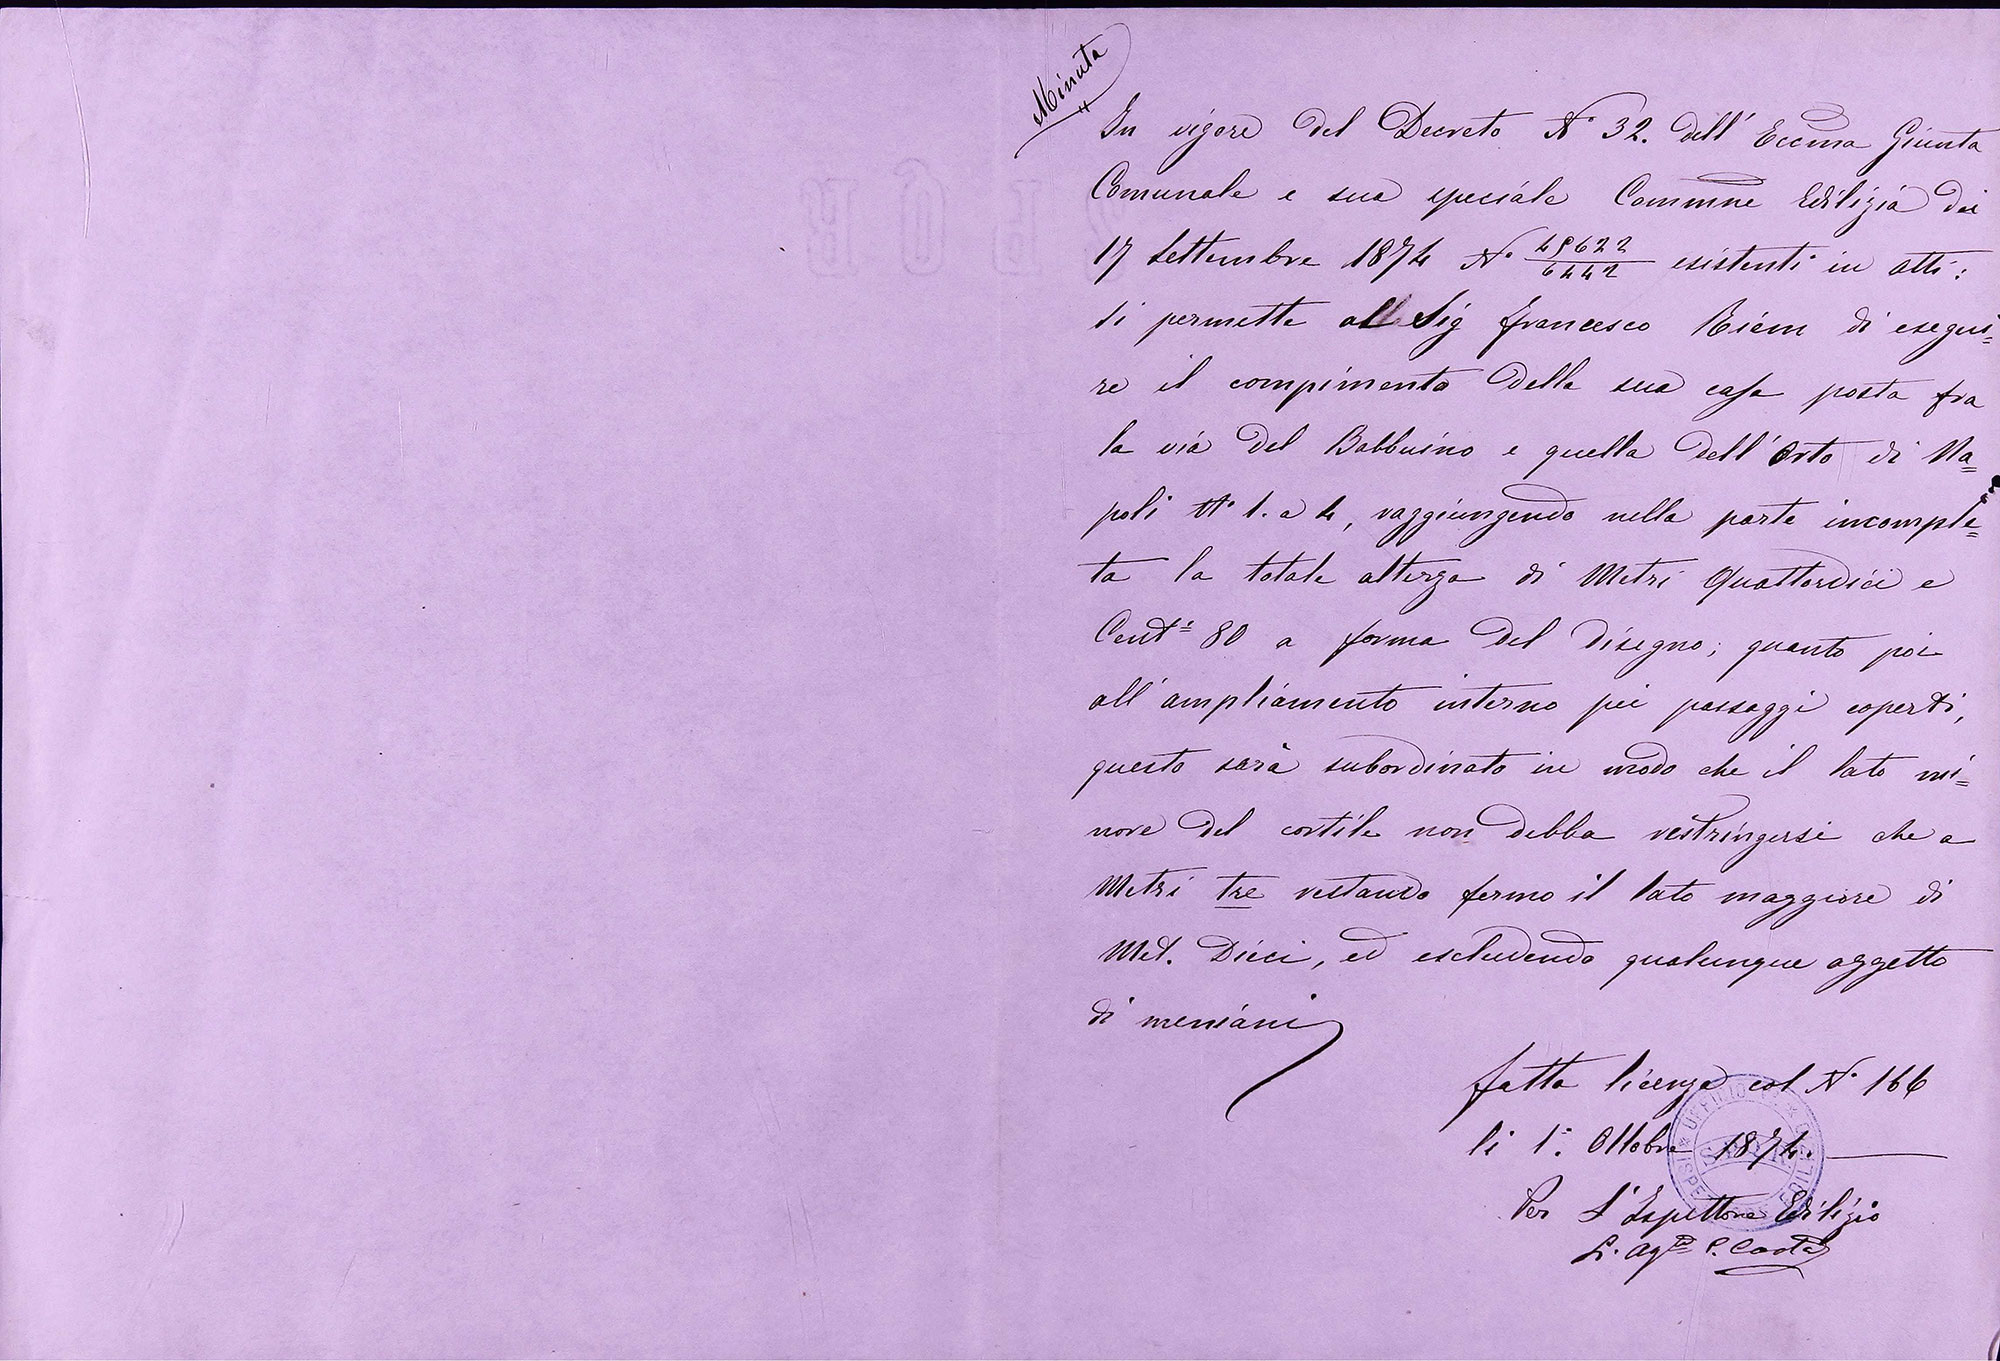 Minuta
In vigore del Decreto N° 32. dell' Eccma Giunta
Comunale e sua speciale Commne Edilizia dei
17 Settembre 1874 N° 49622/6442 esistenti in atti:
si permette al Sig Francesco Riem di esegui=
re il compimento della sua casa posta fra
la via del Babbuino e quella dell' Orto di Na=
poli N° 1. a 4, raggiungendo nella parte incomple=
ta la totale altezza di Metri Quattordici e
Centi 80 a forma del disegno; quanto poi
all'ampliamento interno pei passaggi coperti,
questo sarà subordinato in modo che il lato mi=
nore del cortile non debba restringersi che a
Metri tre restando fermo il lato maggiore di
Met. Dieci, ed escludendo qualunque aggetto
di meniani
fatta licenza col N° 166
li 1°. Ottobre 1874.
Per L'Ispettore Edilizio